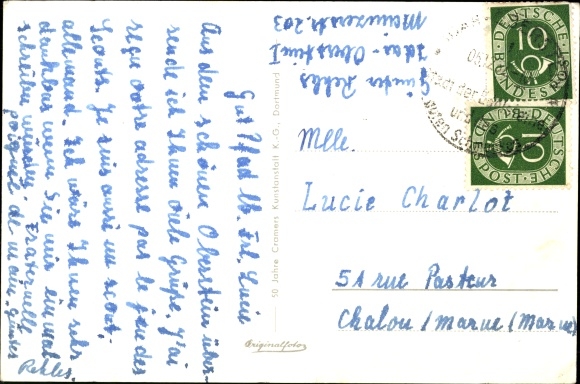 Gut Pfad lb. Frl. Lucie
Aus dem schönen Oberstein über-
sende ich Ihnen viele Grüße. J'ai
reçue votre adresse par le jeu des
Scouts. Je suis aussi un scout.
allemand. Ich wäre Ihnen sehr
dankbar wenn Sie mir einmal
schreiben würden. Fraternelle
poignée de main. Günter
Rehles.
Günter Rehles
Idar-Oberstein I
Mainzerstr. 203
50 Jahre Cramers Kunstanstalt K.-G., Dortmund
DEUTSCHE
BUNDESPOST
10
DEUTSCHE
BUNDESPOST
10
Mlle.
Lucie Charlot
51 rue Pasteur
Chalon/marne (Marne)
Originalfoto